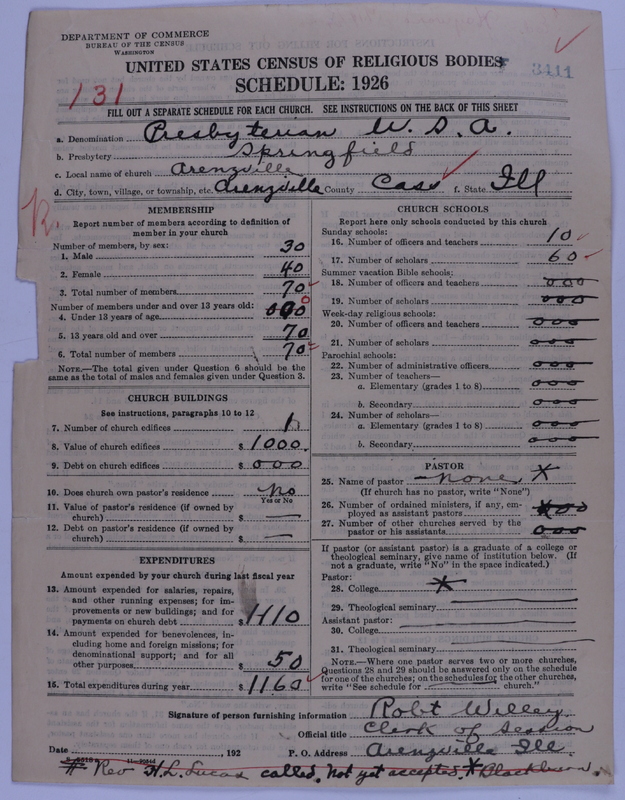 DEPARTMENT OF COMMERCE
BUREAU OF THE CENSUS
WASHINGTON
UNITED STATES CENSUS OF RELIGIOUS BODIES
3411
SCHEDULE: 1926
131
FILL OUT A SEPARATE SCHEDULE FOR EACH CHURCH. SEE INSTRUCTIONS ON THE BACK OF THIS SHEET
a. Denomination Presbyterian U. S. A.
b. Presbytery Springfield
c. Local name of church Arenzville
d. City, town, village, or township, etc. Arenzville County Cass f. State Ill
MEMBERSHIP
Report number of members according to definition of
member in your church
Number of members, by sex:
1. Male 30
2. Female 40
3. Total number of members 70
Number of members under and over 13 years old:
4. Under 13 years of age 000
5. 13 years old and over 70
6. Total number of members 70
NOTE.—The total given under Question 6 should be the
same as the total of males and females given under Question 3.
CHURCH BUILDINGS
See instructions, paragraphs 10 to 12
7. Number of church edifices 1
8. Value of church edifices $ 1000.
9. Debt on church edifices $ 000
10. Does church own pastor's residence No
Yes or No
11. Value of pastor's residence (if owned by
church) $ —
12. Debt on pastor's residence (if owned by
church) $ —
EXPENDITURES
Amount expended by your church during last fiscal year
13. Amount expended for salaries, repairs,
and other running expenses; for im-
provements or new buildings; and for
payments on church debt $ 1110
14. Amount expended for benevolences, in-
cluding home and foreign missions; for
denominational support; and for all
other purposes $ 50
15. Total expenditures during year $ 1160
CHURCH SCHOOLS
Report here only schools conducted by this church
Sunday schools:
16. Number of officers and teachers 10
17. Number of scholars 60
Summer vacation Bible schools:
18. Number of officers and teachers 000
19. Number of scholars 000
Week-day religious schools:
20. Number of officers and teachers 000
21. Number of scholars 000
Parochial schools:
22. Number of administrative officers 000
23. Number of teachers—
a. Elementary (grades 1 to 8) 000
b. Secondary 000
24. Number of scholars—
a. Elementary (grades 1 to 8) 000
b. Secondary 000
PASTOR
25. Name of pastor None *
(If church has no pastor, write "None")
26. Number of ordained ministers, if any, em-
ployed as assistant pastors 000
27. Number of other churches served by the
pastor or his assistants 000
If pastor (or assistant pastor) is a graduate of a college or
theological seminary, give name of institution below. (If
not a graduate, write "No" in the space indicated.)
Pastor:
28. College *
29. Theological seminary
Assistant pastor:
30. College
31. Theological seminary
NOTE.—Where one pastor serves two or more churches,
Questions 28 and 29 should be answered only on the schedule
for one of the churches; on the schedules for the other churches,
write "See schedule for church."
Signature of person furnishing information Robt Willey
Official title Clerk of Session
Date , 192 P. O. Address Arenzville Ill.
* Rev H. L. Lucas called. Not yet accepted. * Blackburn.